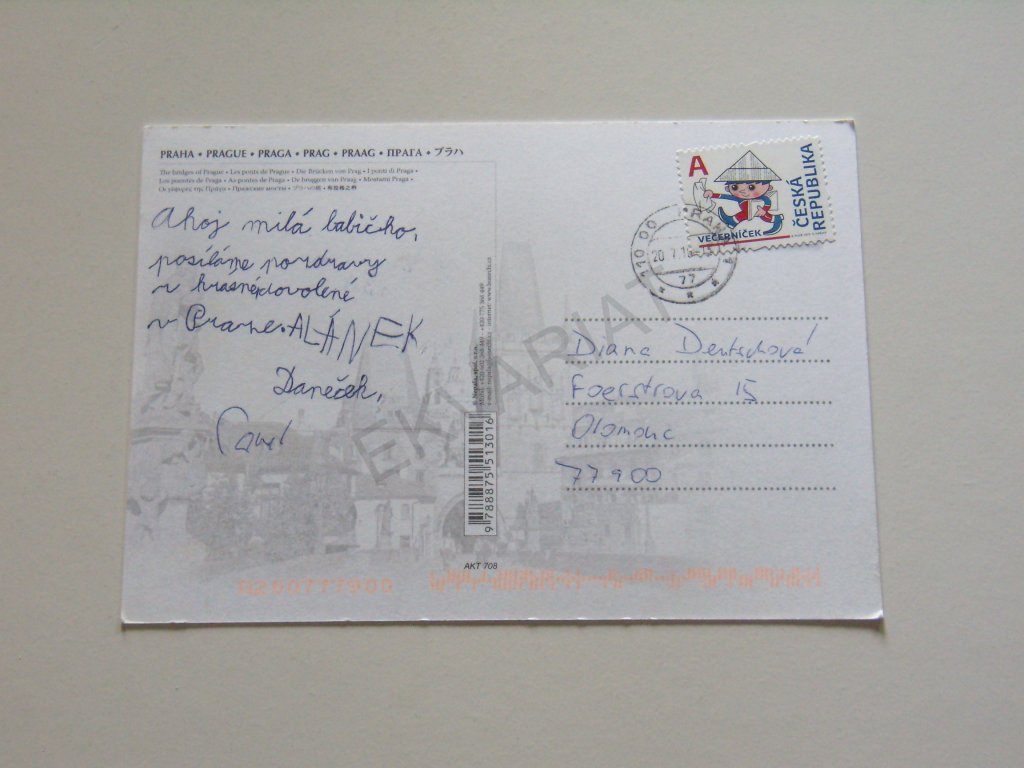 PRAHA • PRAGUE • PRAGA • PRAG • PRAAG • ПРАГА • プラハ
The bridges of Prague • Les ponts de Prague • Die Brücken von Prag • I ponti di Praga •
Los puentes de Praga • As pontes de Praga • De bruggen van Praag • Mostarni Praga •
Οι γέφυρες της Πράγα • Пражские мосты • プラハの橋 •
Ahoj milá babičko,
posíláme pozdravy
z krásné dovolené
v Praze. ALÁNEK,
Daneček,
Pavel
A
ČESKÁ
REPUBLIKA
VEČERNÍČEK
110 00 PRAHA
20. 7. 16
77
Diana Dentschová
Foerstrova 15
Olomouc
77900
EKVARIAT
9 788875 513016
AKT 708